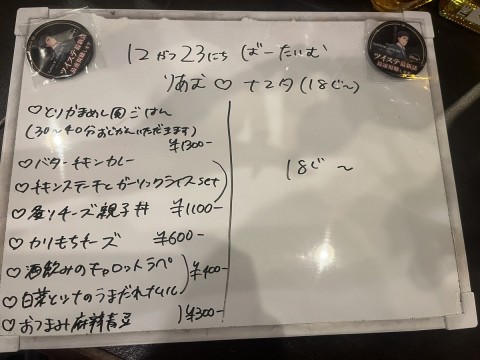 12がつ23にち ばーたいむ
りあむ♡ ナユタ(18じ〜)
♡とりかまめし風ごはん
(30〜40分おじかんいただきます)
¥1300-
♡バターチキンカレー
♡チキンステーキとガーリックライスset
♡釜りチーズ親子丼 ¥1100-
♡カリもちチーズ ¥600-
♡酒飲みのキャロットラペ
¥400-
♡白菜とツナのうまだれナムル
♡おつまみ麻辣青豆 ¥300-
18じ〜
ツイステ最新話
ツイステ最新話